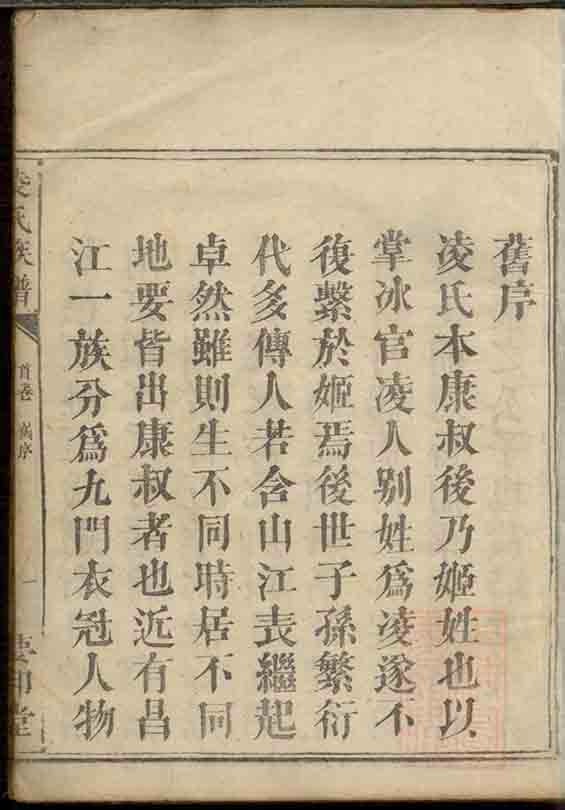 舊序
凌氏本康叔後乃姬姓也以
掌冰官凌人别姓為凌遂不
復繫於姬焉後世子孫繁衍
代多傳人若含山江表繼起
卓然雖則生不同時居不同
地要皆出康叔者也近有昌
江一族分為九門衣冠人物
凌氏族譜
首卷 舊序
一